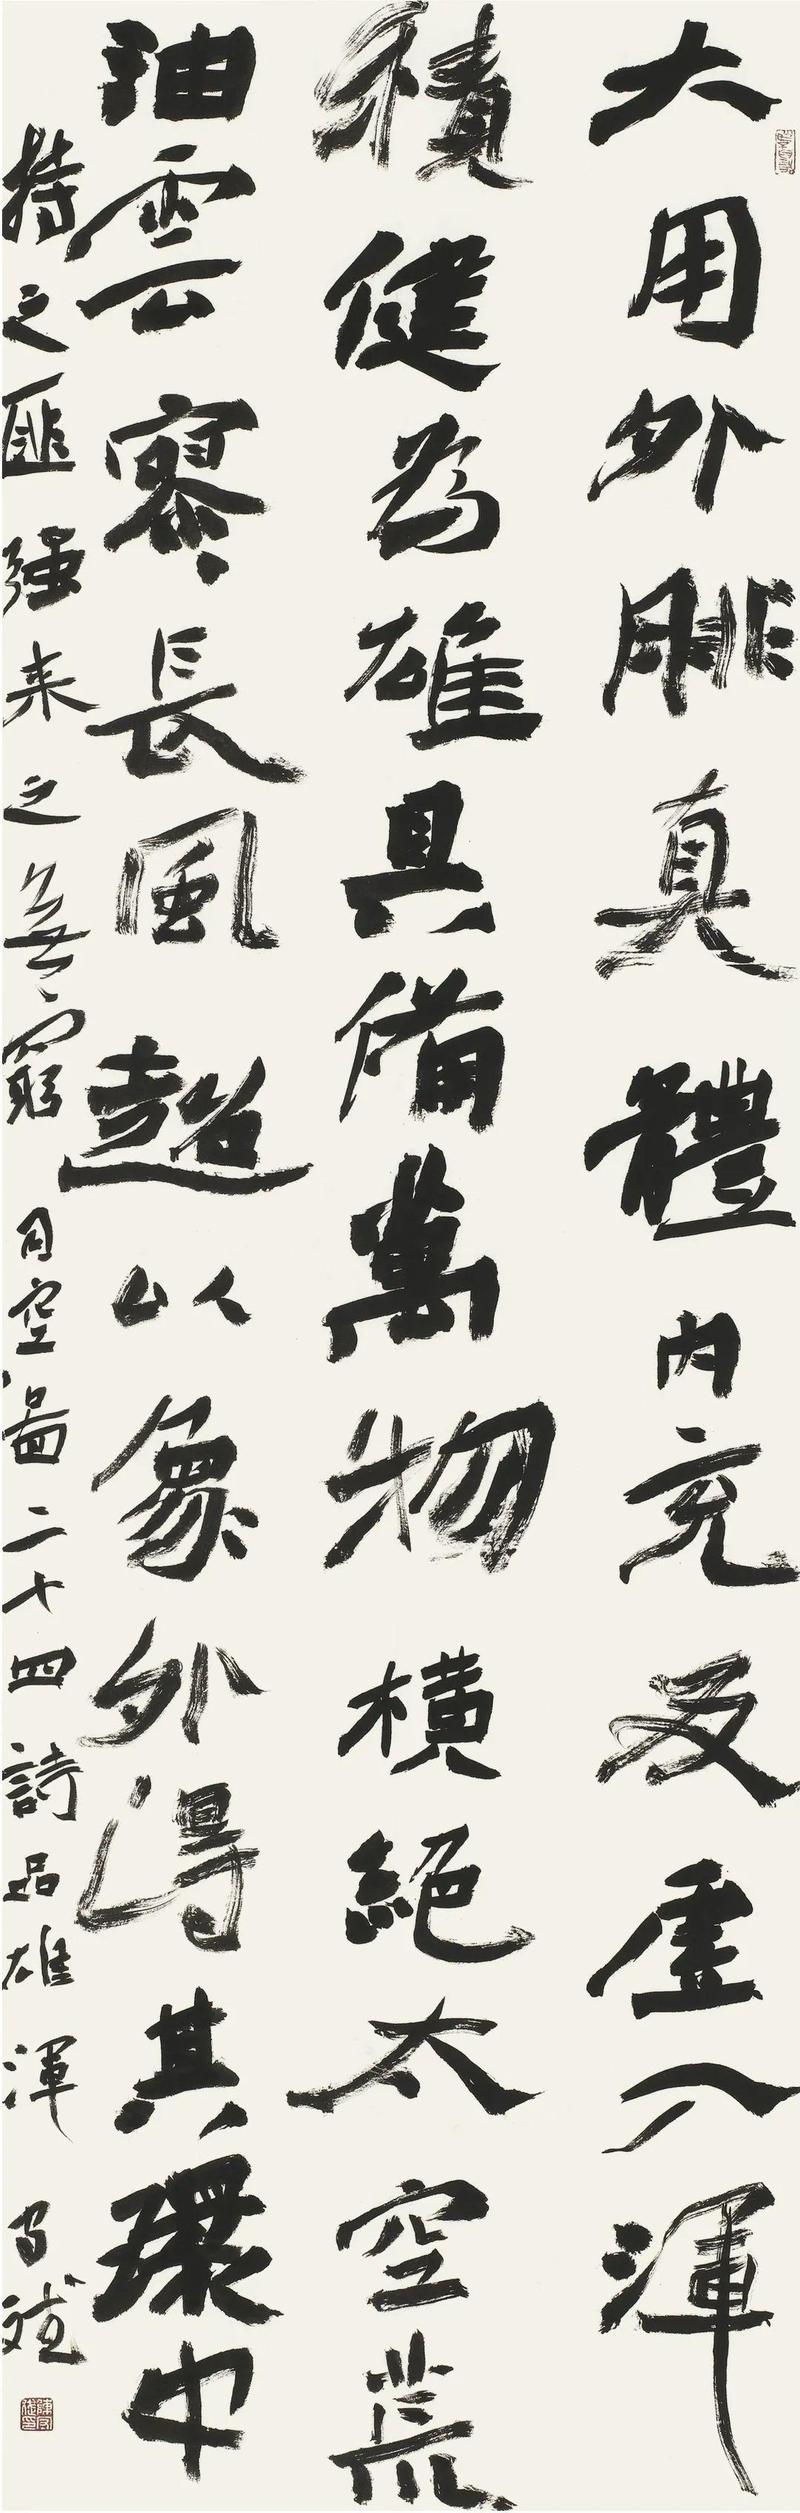 大用外腓真體內充反虛入渾
積健為雄具備萬物橫絕太空荒
油雲寥長風超以象外得其環中
持之匪强來之無窮司空圖二十四詩品雄渾